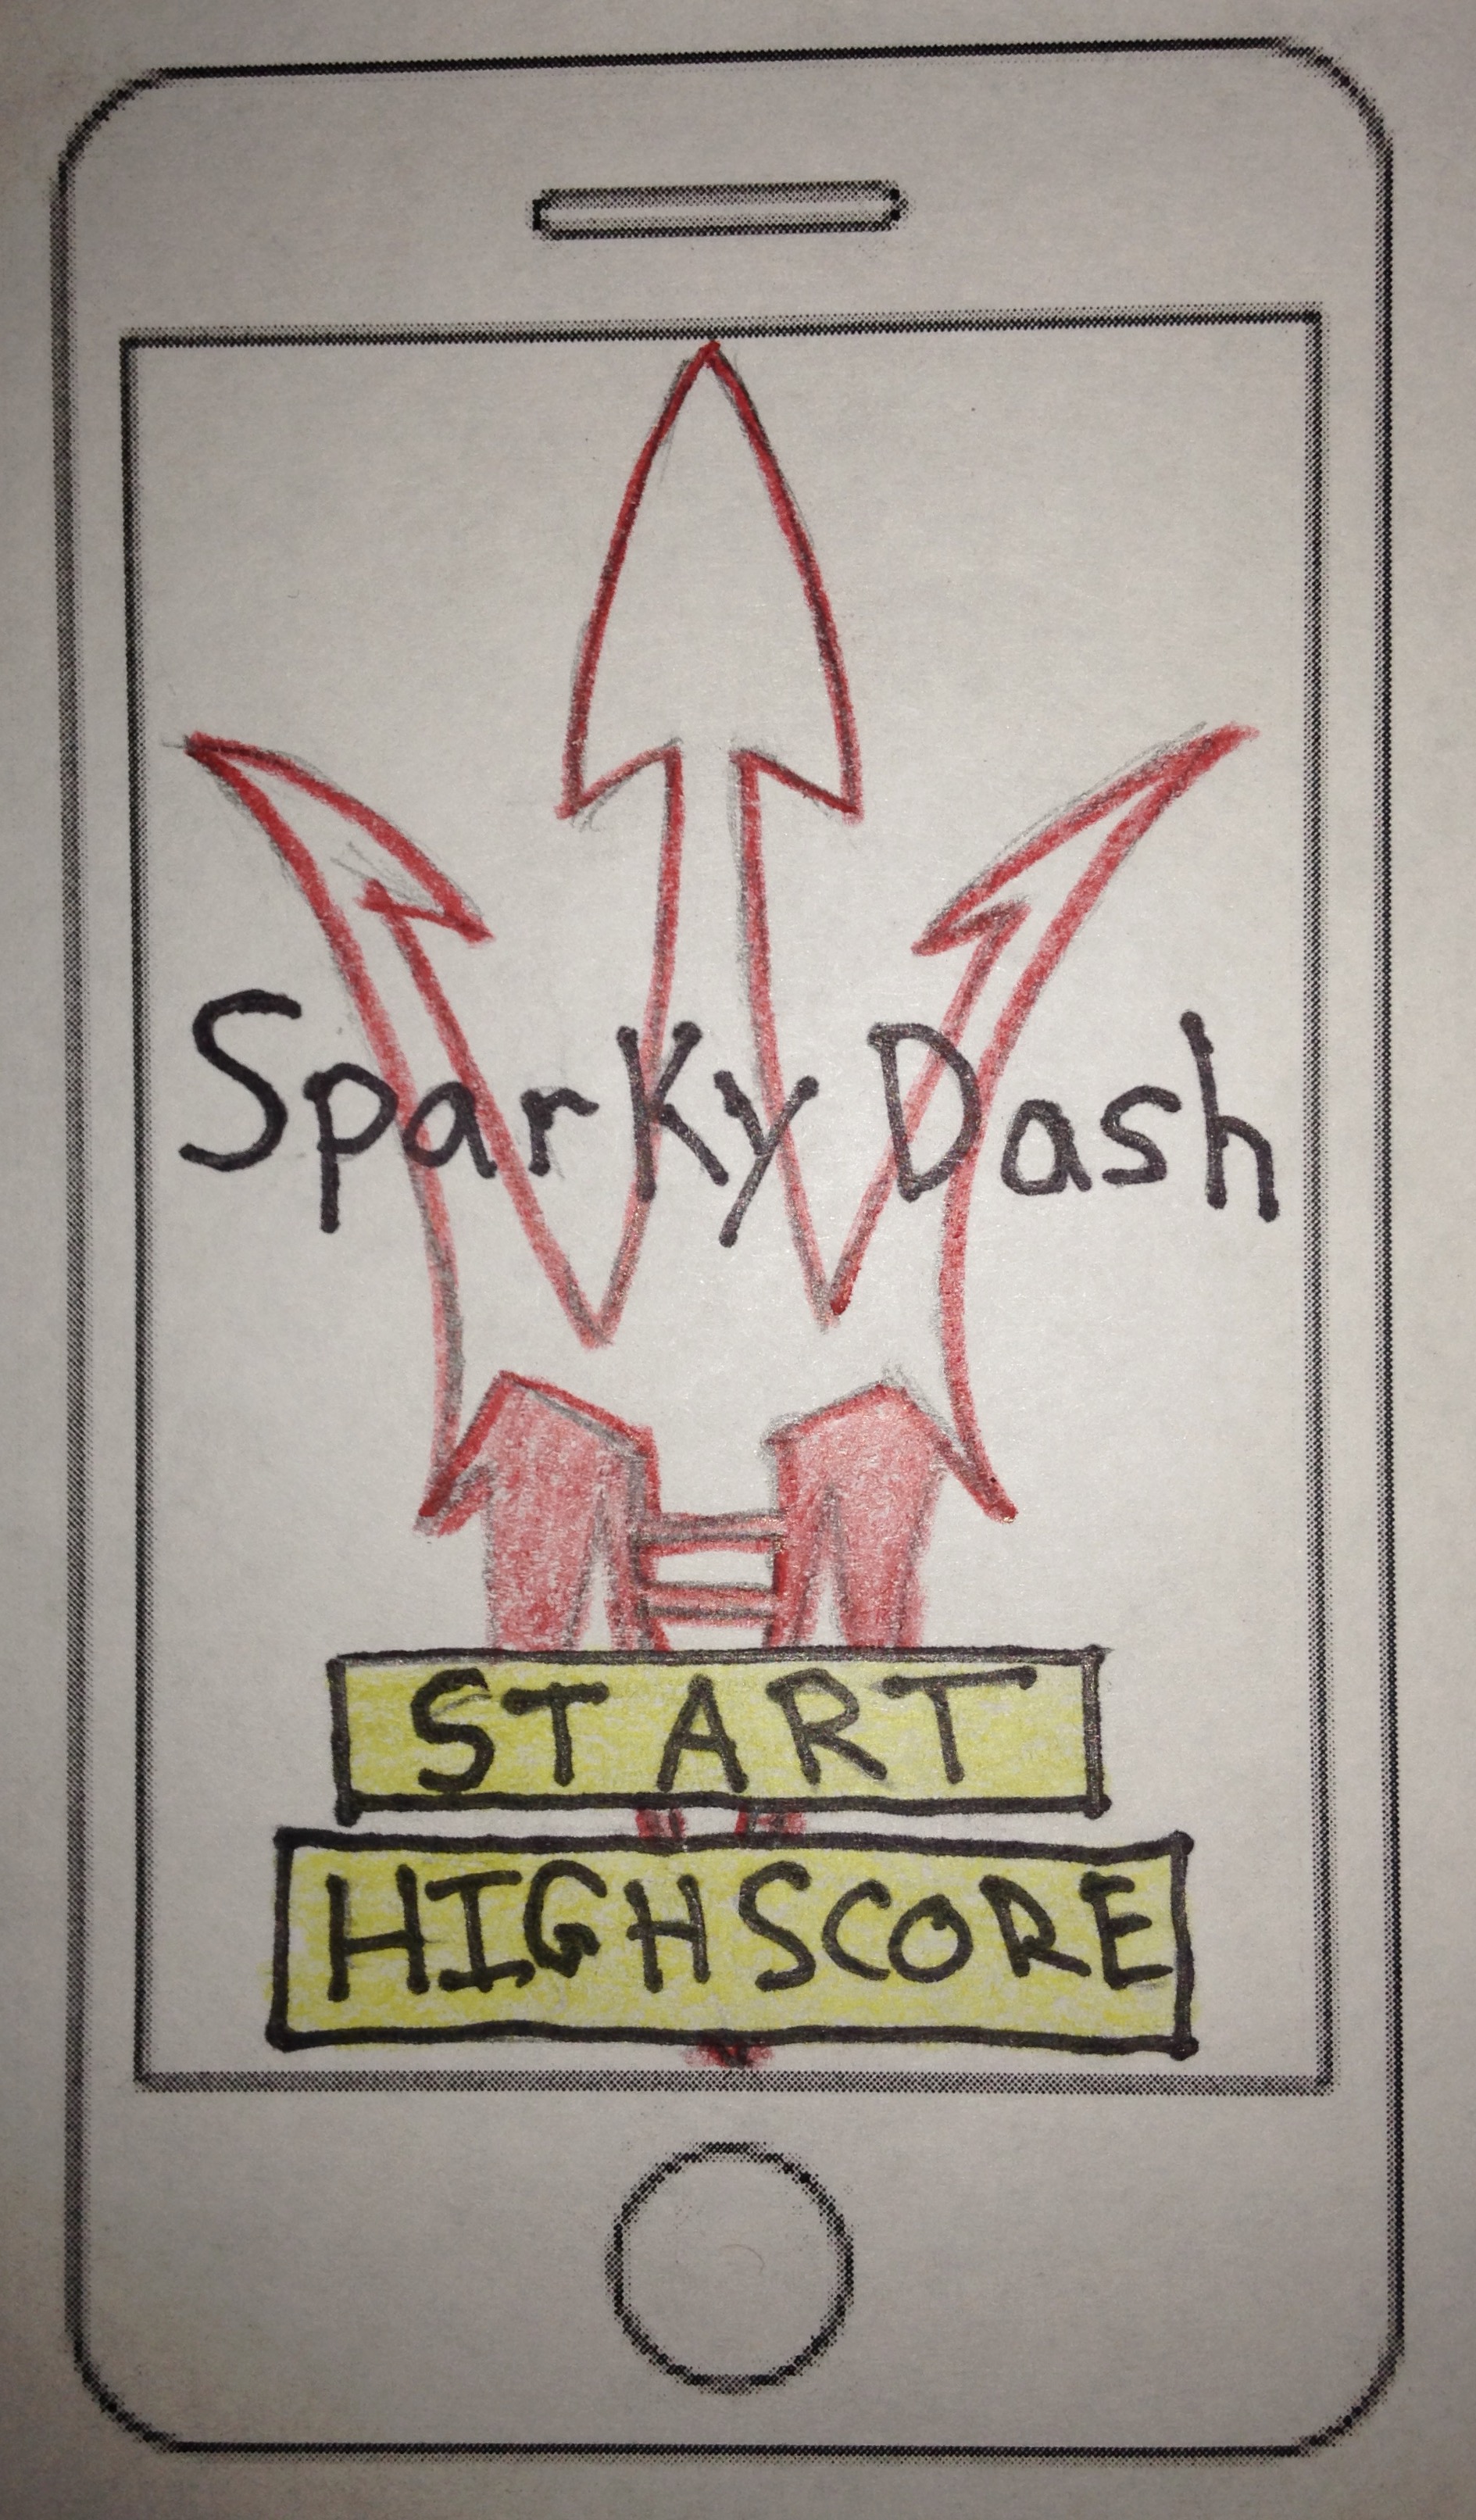 Sparky Dash
START
HIGHSCORE